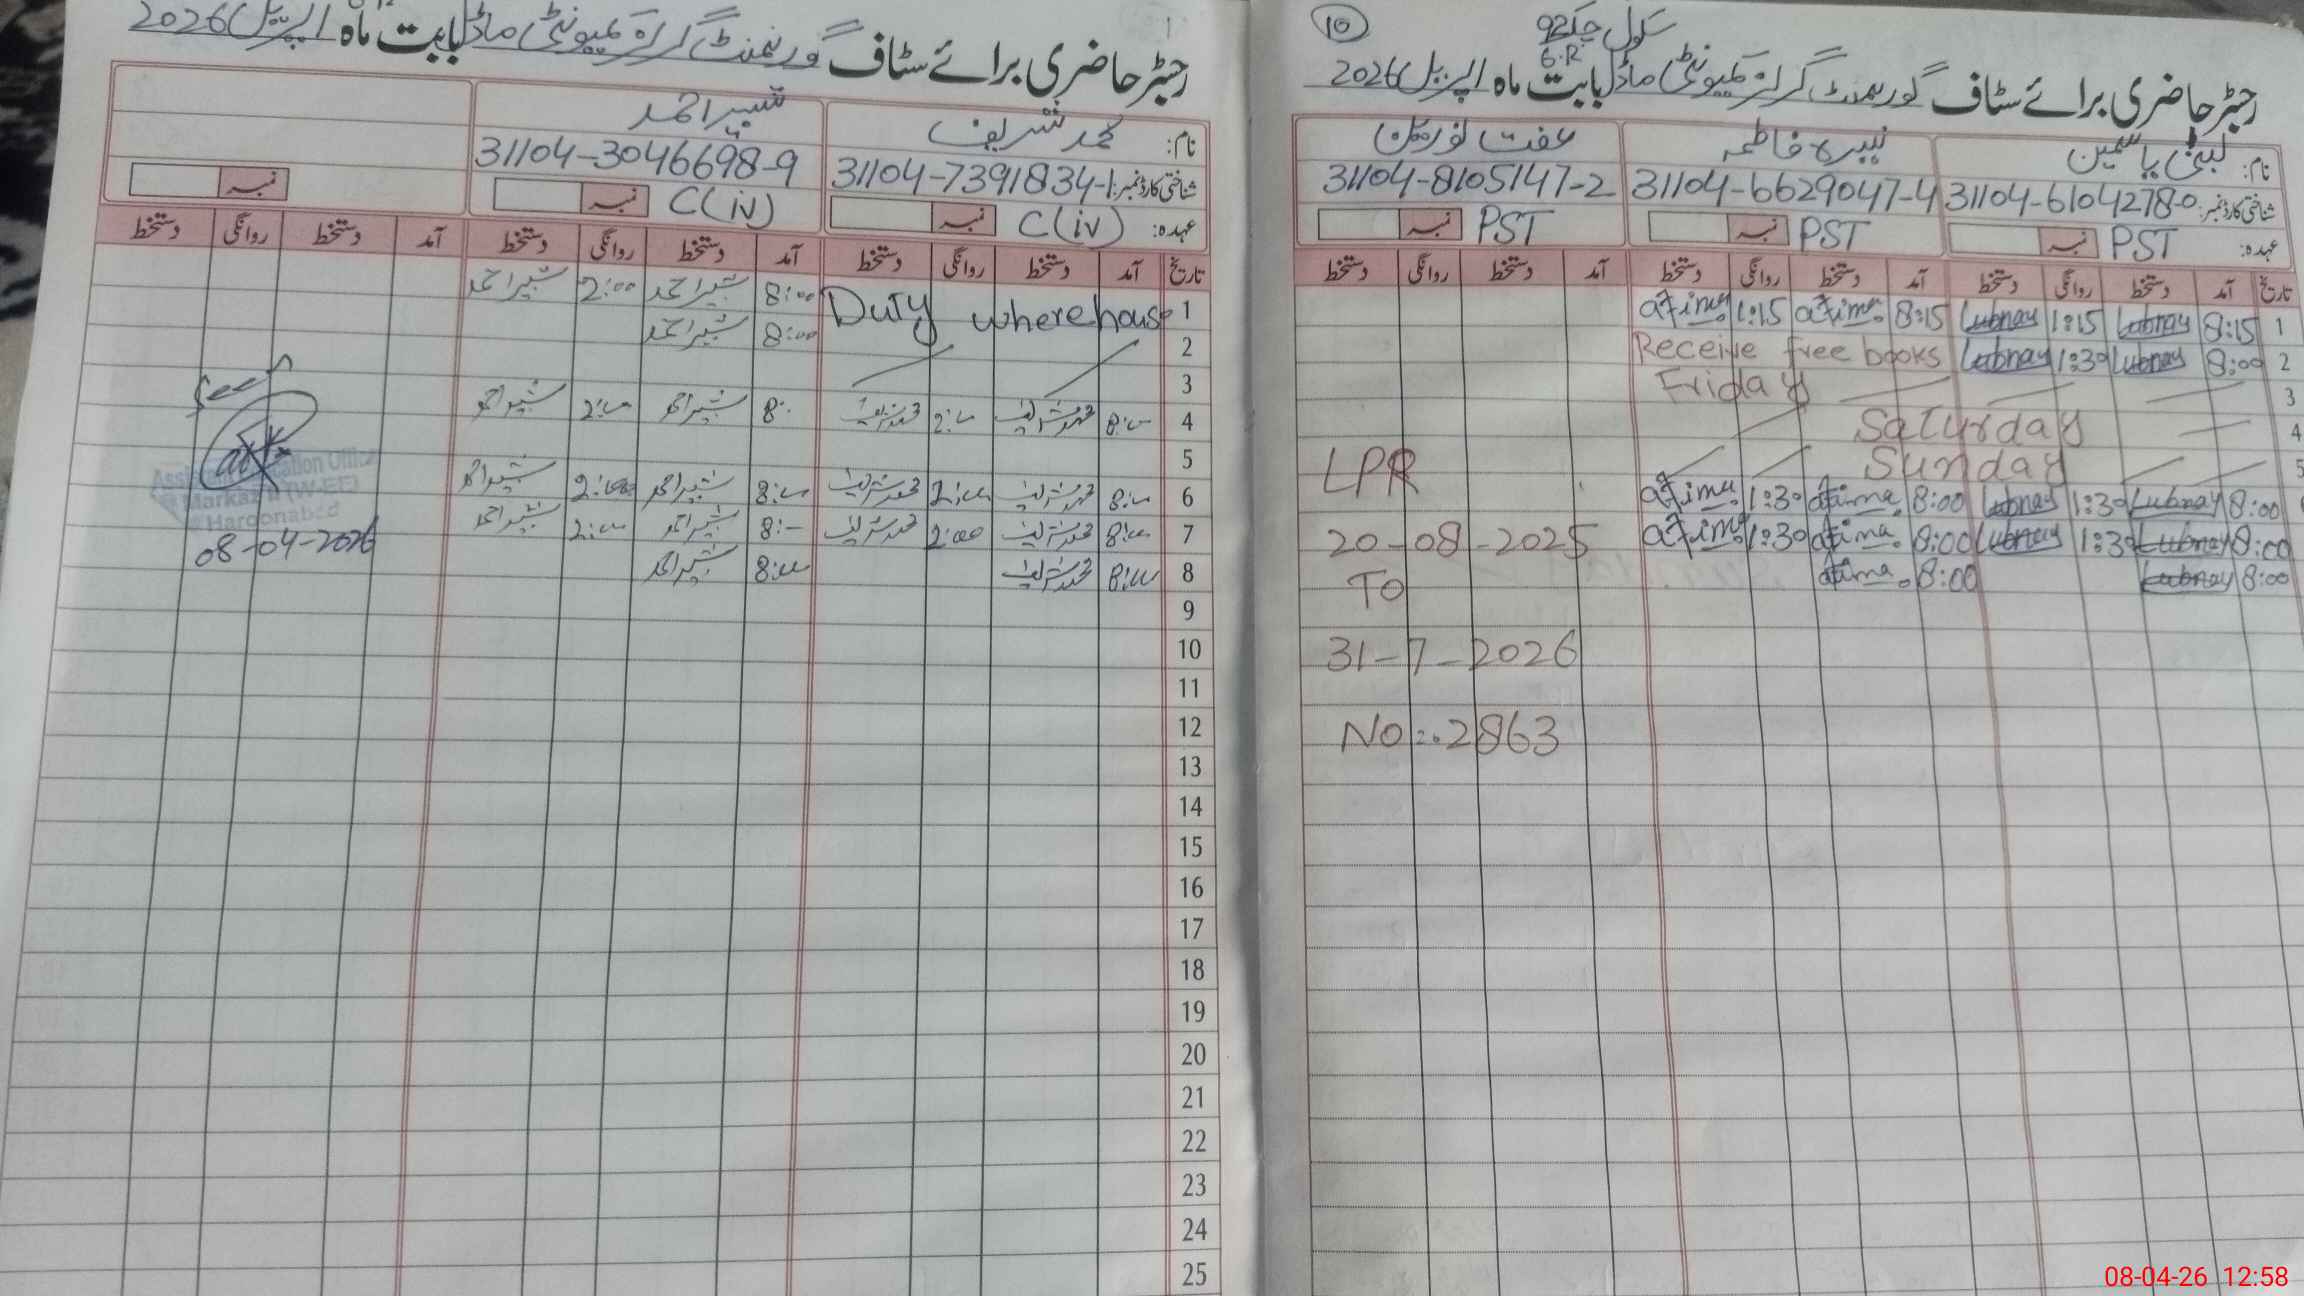 10
سکول چک 92
6.R
رجسٹر حاضری برائے سٹاف گورنمنٹ گرلز کمیونٹی ماڈل بابت ماہ اپریل 2026
نام: لبنیٰ یاسمین نیبرہ فاطمہ عفت نورین
شناختی کارڈ نمبر: 31104-6104278-0 31104-6629047-4 31104-8105147-2
عہدہ: PST نمبر PST نمبر PST نمبر
تاریخ آمد دستخط روانگی دستخط آمد دستخط روانگی دستخط آمد دستخط روانگی دستخط
1 8:15 Lubnay 1:15 Lubnay 8:15 atima 1:15 atima
2 8:00 Lubnay 1:30 Lubnay Receive free books
3 Friday
4 Saturday
5 Sunday
8:00 Lubnay 1:30 Lubnay 8:00 atima 1:30 atima
8:00 Lubnay 1:30 Lubnay 8:00 atima 1:30 atima
8:00 Lubnay 8:00 atima
LPR
20-08-2025
TO
31-7-2026
No:.2863
رجسٹر حاضری برائے سٹاف گورنمنٹ گرلز کمیونٹی ماڈل بابت ماہ اپریل 2026
نام: محمد شریف شبیر احمد
شناختی کارڈ نمبر: 31104-7391834-1 31104-3046698-9
عہدہ: C(iv) نمبر C(iv) نمبر نمبر
تاریخ آمد دستخط روانگی دستخط آمد دستخط روانگی دستخط آمد دستخط روانگی دستخط
1 Duty wherehouse 8:00 شبیر احمد 2:00 شبیر احمد
2 8:00 شبیر احمد
3
4 8:00 محمد شریف 2:00 محمد شریف 8: شبیر احمد 2:00 شبیر احمد
5
6 8:00 محمد شریف 2:00 محمد شریف 8:00 شبیر احمد 2:00 شبیر احمد
7 8:00 محمد شریف 2:00 محمد شریف 8:- شبیر احمد 2:00 شبیر احمد
8 8:00 محمد شریف 8:00 شبیر احمد
9
10
11
12
13
14
15
16
17
18
19
20
21
22
23
24
25
Seen
Assistant Education Office
Markaz (W-EE)
Haroonabad
08-04-2026
08-04-26 12:58